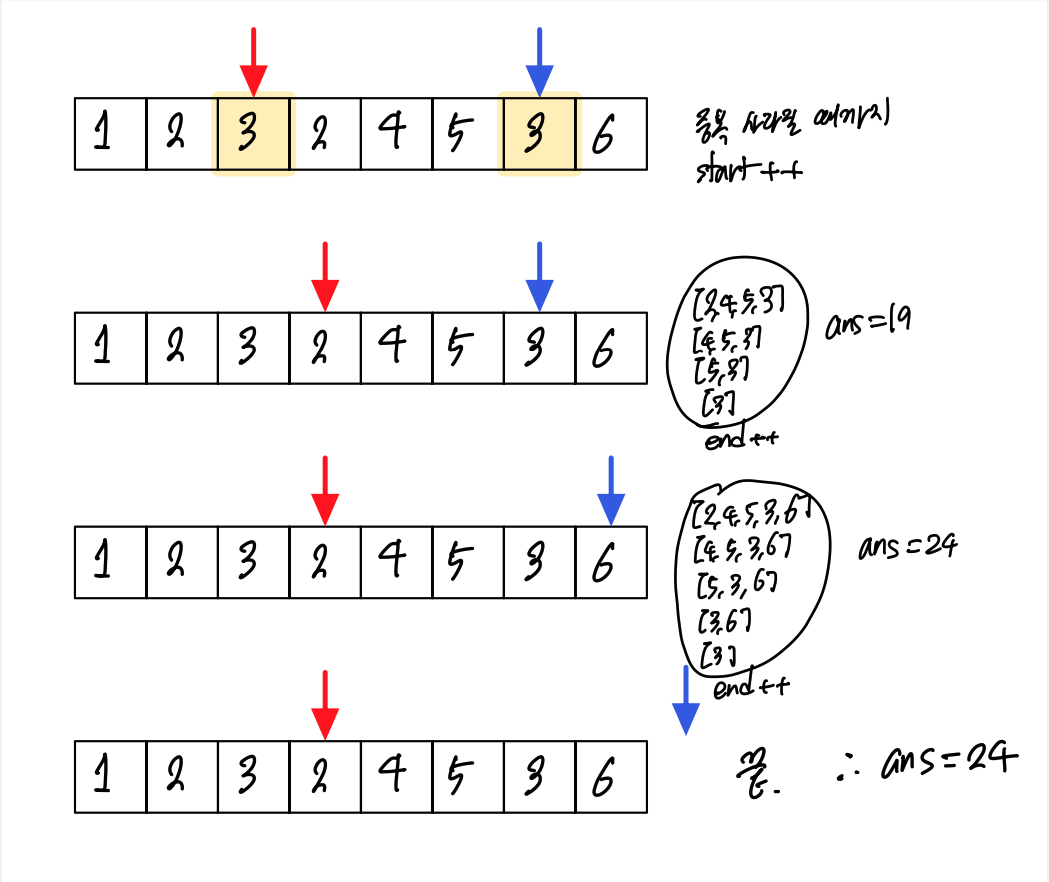 1 2 3 2 4 5 3 6
중복 사라질 때까지
start++
1 2 3 2 4 5 3 6
[2,4,5,3]
[4,5,3]
[5,3]
[3]
end++
ans=19
1 2 3 2 4 5 3 6
[2,4,5,3,6]
[4,5,3,6]
[5,3,6]
[3,6]
[3]
end++
ans=24
1 2 3 2 4 5 3 6
끝.
∴ ans=24